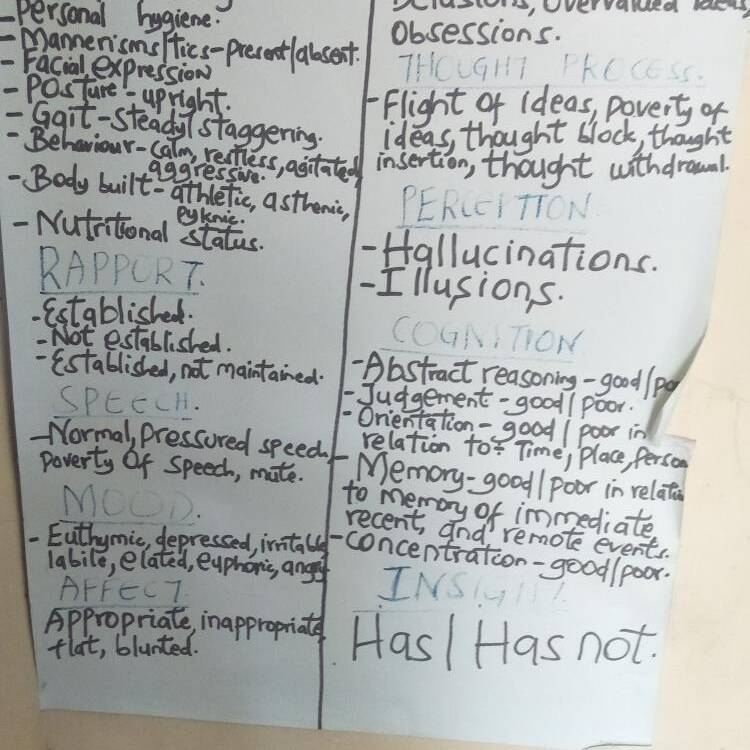 Personal hygiene.
- Mannerisms/tics-present/absent.
- Facial expression
- Posture - upright.
- Gait-steady/staggering.
- Behaviour-calm, restless, agitated,
aggressive.
- Body built-athletic, asthenic,
pyknic.
- Nutritional status.
RAPPORT.
- Established.
- Not established.
- Established, not maintained.
SPEECH.
- Normal, Pressured speech,
Poverty of speech, mute.
MOOD.
- Euthymic, depressed, irritable
labile, elated, euphoric, angry
AFFECT
Appropriate, inappropriate,
flat, blunted.
Delusions, Overvalued ideas,
Obsessions.
THOUGHT PROCESS.
- Flight of ideas, poverty of
ideas, thought block, thought
insertion, thought withdrawal.
PERCEPTION
- Hallucinations.
- Illusions.
COGNITION
- Abstract reasoning - good/po
- Judgement - good/poor.
- Orientation - good/poor in
relation to: Time, Place, Person
- Memory-good/poor in relatio
to memory of immediate
recent, and remote events.
- Concentration - good/poor.
INSIGHT
Has/Has not.